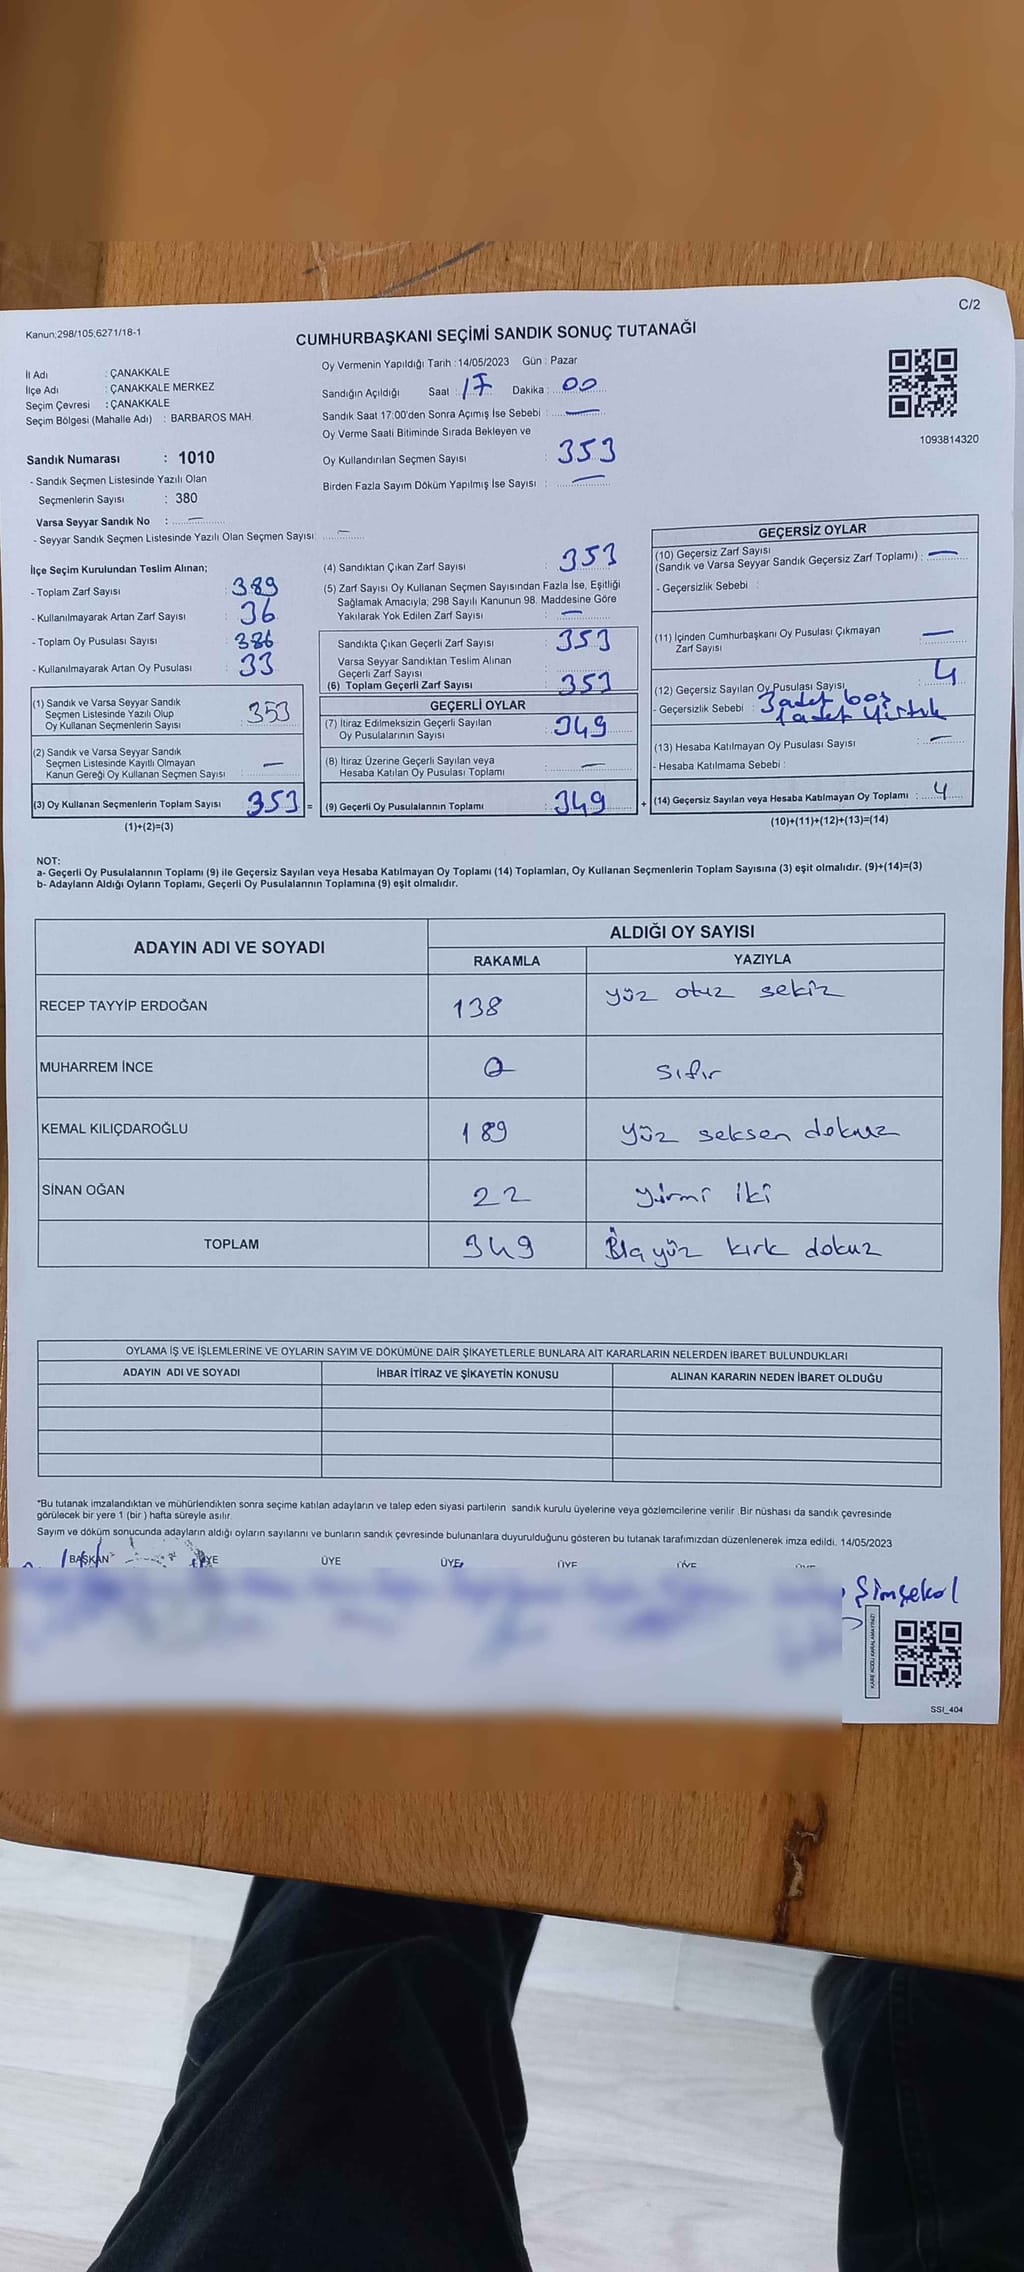 C/2
Kanun;298/105,6271/18-1
CUMHURBAŞKANI SEÇİMİ SANDIK SONUÇ TUTANAĞI
İl Adı : ÇANAKKALE
İlçe Adı : ÇANAKKALE MERKEZ
Seçim Çevresi : ÇANAKKALE
Seçim Bölgesi (Mahalle Adı) : BARBAROS MAH.
Sandık Numarası : 1010
- Sandık Seçmen Listesinde Yazılı Olan
Seçmenlerin Sayısı : 380
Varsa Seyyar Sandık No : —
- Seyyar Sandık Seçmen Listesinde Yazılı Olan Seçmen Sayısı : —
Oy Vermenin Yapıldığı Tarih : 14/05/2023 Gün : Pazar
Sandığın Açıldığı Saat : 17 Dakika : 00
Sandık Saat 17:00'den Sonra Açımış İse Sebebi : —
Oy Verme Saati Bitiminde Sırada Bekleyen ve
Oy Kullandırılan Seçmen Sayısı : 353
Birden Fazla Sayım Döküm Yapılmış İse Sayısı : —
1093814320
İlçe Seçim Kurulundan Teslim Alınan;
- Toplam Zarf Sayısı : 389
- Kullanılmayarak Artan Zarf Sayısı : 36
- Toplam Oy Pusulası Sayısı : 386
- Kullanılmayarak Artan Oy Pusulası : 33
(1) Sandık ve Varsa Seyyar Sandık
Seçmen Listesinde Yazılı Olup
Oy Kullanan Seçmenlerin Sayısı : 353
(2) Sandık ve Varsa Seyyar Sandık
Seçmen Listesinde Kayıtlı Olmayan
Kanun Gereği Oy Kullanan Seçmen Sayısı : —
(3) Oy Kullanan Seçmenlerin Toplam Sayısı : 353 =
(1)+(2)=(3)
(4) Sandıktan Çıkan Zarf Sayısı : 353
(5) Zarf Sayısı Oy Kullanan Seçmen Sayısından Fazla İse, Eşitliği
Sağlamak Amacıyla; 298 Sayılı Kanunun 98. Maddesine Göre
Yakılarak Yok Edilen Zarf Sayısı : —
Sandıkta Çıkan Geçerli Zarf Sayısı : 353
Varsa Seyyar Sandıktan Teslim Alınan
Geçerli Zarf Sayısı :
(6) Toplam Geçerli Zarf Sayısı : 353
GEÇERLİ OYLAR
(7) İtiraz Edilmeksizin Geçerli Sayılan
Oy Pusulalarının Sayısı : 349
(8) İtiraz Üzerine Geçerli Sayılan veya
Hesaba Katılan Oy Pusulası Toplamı : —
(9) Geçerli Oy Pusulalarının Toplamı : 349 +
GEÇERSİZ OYLAR
(10) Geçersiz Zarf Sayısı
(Sandık ve Varsa Seyyar Sandık Geçersiz Zarf Toplamı) : —
- Geçersizlik Sebebi :
(11) İçinden Cumhurbaşkanı Oy Pusulası Çıkmayan
Zarf Sayısı : —
(12) Geçersiz Sayılan Oy Pusulası Sayısı : 4
- Geçersizlik Sebebi : 3 adet boş
1 adet yırtık
(13) Hesaba Katılmayan Oy Pusulası Sayısı : —
- Hesaba Katılmama Sebebi :
(14) Geçersiz Sayılan veya Hesaba Katılmayan Oy Toplamı : 4
(10)+(11)+(12)+(13)=(14)
NOT:
a- Geçerli Oy Pusulalarının Toplamı (9) ile Geçersiz Sayılan veya Hesaba Katılmayan Oy Toplamı (14) Toplamları, Oy Kullanan Seçmenlerin Toplam Sayısına (3) eşit olmalıdır. (9)+(14)=(3)
b- Adayların Aldığı Oyların Toplamı, Geçerli Oy Pusulalarının Toplamına (9) eşit olmalıdır.
ADAYIN ADI VE SOYADI
ALDIĞI OY SAYISI
RAKAMLA YAZIYLA
RECEP TAYYİP ERDOĞAN 138 yüz otuz sekiz
MUHARREM İNCE 0 sıfır
KEMAL KILIÇDAROĞLU 189 yüz seksen dokuz
SİNAN OĞAN 22 yirmi iki
TOPLAM 349 yüz kırk dokuz
OYLAMA İŞ VE İŞLEMLERİNE VE OYLARIN SAYIM VE DÖKÜMÜNE DAİR ŞİKAYETLERLE BUNLARA AİT KARARLARIN NELERDEN İBARET BULUNDUKLARI
ADAYIN ADI VE SOYADI İHBAR İTİRAZ VE ŞİKAYETİN KONUSU ALINAN KARARIN NEDEN İBARET OLDUĞU
*Bu tutanak imzalandıktan ve mühürlendikten sonra seçime katılan adayların ve talep eden siyasi partilerin sandık kurulu üyelerine veya gözlemcilerine verilir. Bir nüshası da sandık çevresinde
görülecek bir yere 1 (bir) hafta süreyle asılır.
Sayım ve döküm sonucunda adayların aldığı oyların sayılarını ve bunların sandık çevresinde bulunanlara duyurulduğunu gösteren bu tutanak tarafımızdan düzenlenerek imza edildi. 14/05/2023
BAŞKAN ÜYE ÜYE ÜYE ÜYE ÜYE
Şimşekol
KARE KODU KARALAMAYINIZ!
SSI_404